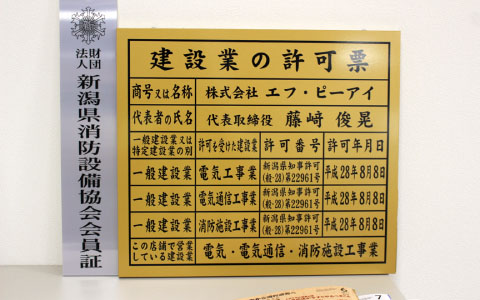 財団
法人
新潟県消防設備協会会員証
建設業の許可票
商号又は名称 株式会社 エフ・ピーアイ
代表者の氏名 代表取締役 藤﨑 俊晃
一般建設業又は
特定建設業の別 許可を受けた建設業 許可番号 許可年月日
一般建設業 電気工事業 新潟県知事許可
(般-28)第22961号 平成28年8月8日
一般建設業 電気通信工事業 新潟県知事許可
(般-28)第22961号 平成28年8月8日
一般建設業 消防施設工事業 新潟県知事許可
(般-28)第22961号 平成28年8月8日
この店舗で営業
している建設業 電気・電気通信・消防施設工事業